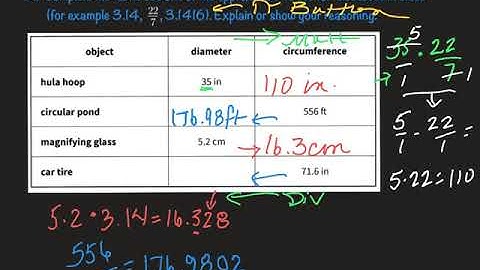 (for example 3.14, 22/7, 3.1416). Explain or show your reasoning.
π Button
Mult
object diameter circumference
hula hoop 35 in 110 in.
circular pond 176.98ft 556 ft
magnifying glass 5.2 cm 16.3cm
car tire 71.6 in
Div
5.2 • 3.14 = 16.328
556
= 176.9802
5
35/1 · 22/7 1
5/1 · 22/1 =
5·22=110